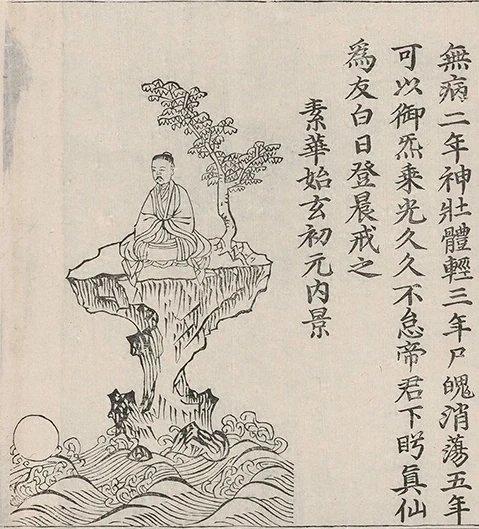 無病二年神壯體輕三年尸魄消蕩五年
可以御炁乘光久久不怠帝君下眄眞仙
爲友白日登晨戒之
素華始玄初元内景